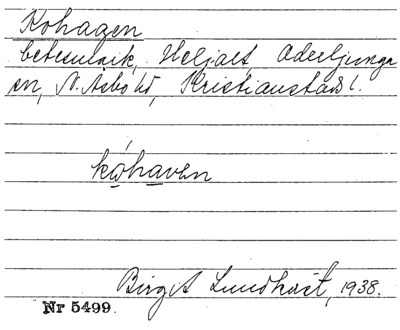 Kohagen
betesmark, Heljalt, Oderljunga
sn, N. Åsbo hd, Kristianstads l.
kóhaven
Birgit Lundkvist, 1938.
Nr 5499